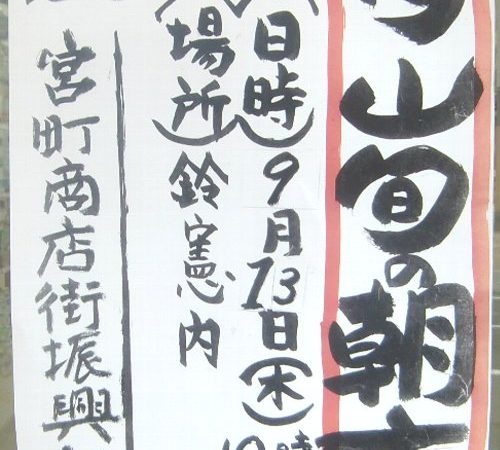 山旬の朝
(日時)9月13日(木)
10時
(場所)鈴憲内
宮町商店街振興